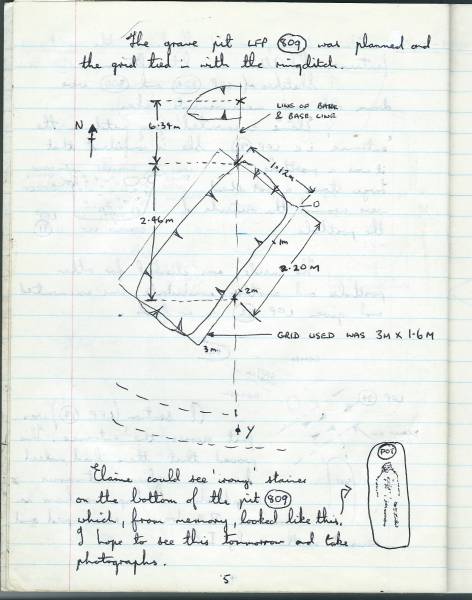 The grave pit LFP 809 was planned and
the grid tied-in with the ringditch.
LINE OF BAULK
& BASE LINE
N
6.34M
1.12M
O
2.46M
x 1m
2.20M
x 2m
GRID USED WAS 3M X 1.6M
3m
Y
Elaine could see 'orangy' stains
on the bottom of the pit 809
which, from memory, looked like this.
I hope to see this tommorrow and take
photographs.
POS
5